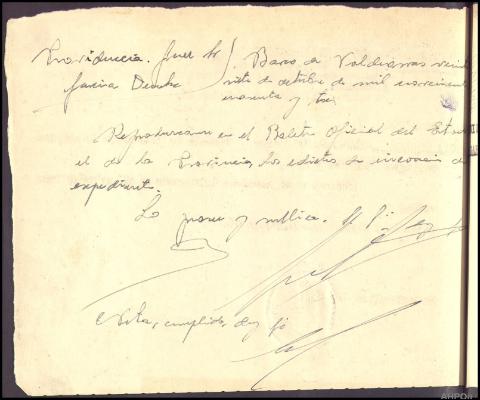 Providencia. Juez Sr
García
Barco de Valdeorras, vein
siete de octubre de mil novecientos
cuarenta y tres
Reprodúzcanse en el Boletín Oficial del Estado
el de la Provincia, los edictos de incoación de
expediente.
Lo proveo y rubrica.
Nota, cumplido, doy fé
AHPOu